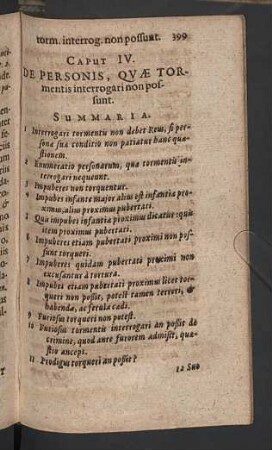 torm. interrog. non possunt. 399
CAPUT IV.
DE PERSONIS, QVÆ TOR-
mentis interrogari non pos-
sunt.
SUMMARIA.
1 Interrogari tormentis non debet Reus, si per-
sona sua conditio non patiatur hanc quæ-
stionem.
2 Enumeratio personarum, quæ tormentis in-
terrogari nequeunt.
3 Impuberes non torquentur.
4 Impubes infantia major alius est infantia pro-
ximus, alius proximus pubertati.
5 Qua impubes infantia proximus dicatur: qui
item proximus pubertati.
6 Impuberes etiam pubertati proximi non pos-
sunt torqueri.
7 Impuberes quidam pubertati proximi non
excusantur à tortura.
8 Impubes etiam pubertati proximus licet tor-
queri non possit, potest tamen terreri,
habenda, ac ferula cædi.
9 Furiosus torqueri non potest.
10 Furiosus tormentis interrogari an possit de
crimine, quod ante furorem admisit, quæ-
stio anceps.
11 Prodigus torqueri an possit?
12 Sur-